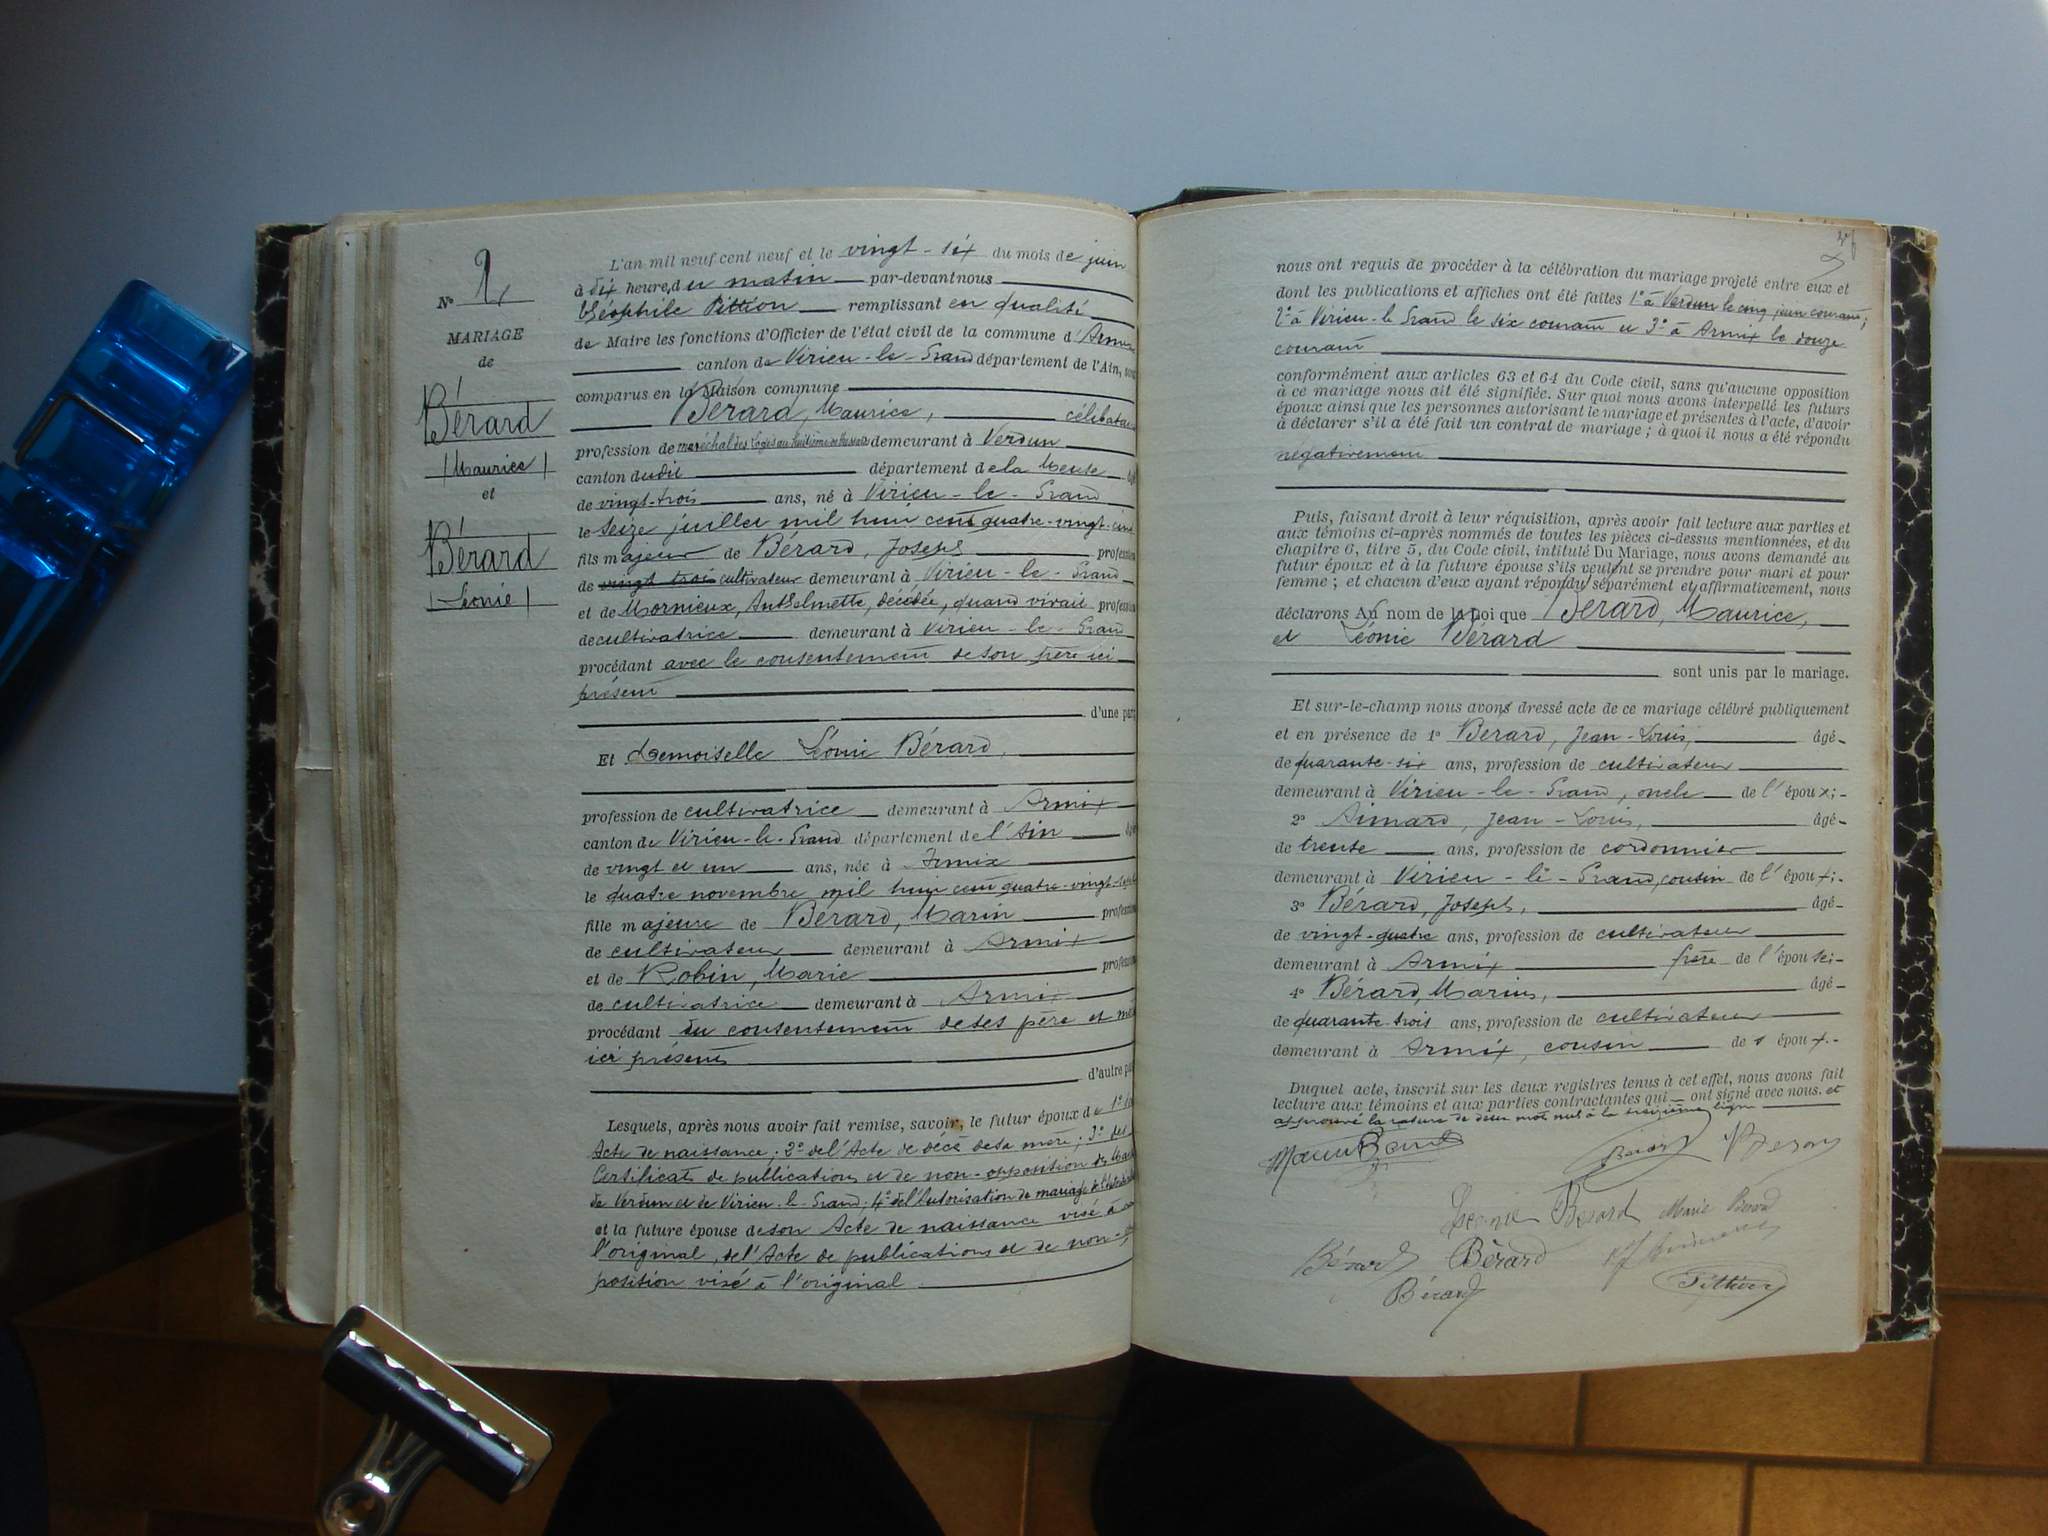 N° 2,
MARIAGE
de
Bérard
Maurice
et
Bérard
Léonie
L'an mil neuf cent neuf et le vingt-six du mois de juin
à dix heure, du matin par-devant nous
Théophile Pittion remplissant en qualité
de Maire les fonctions d'Officier de l'état civil de la commune d'Armix
canton de Virieu-le-Grand département de l'Ain, sont
comparus en la Maison commune
Bérard, Maurice, célibataire
profession de maréchal des Logis au huitième de Hussards demeurant à Verdun
canton dudit département de la Meuse âgé
de vingt-trois ans, né à Virieu-le-Grand
le seize juillet mil huit cent quatre-vingt-cinq
fils majeur de Bérard, Joseph profession
de vingt trois cultivateur demeurant à Virieu-le-Grand
et de Mornieux, Anthelmette, décédée, quand vivait profession
de cultivatrice demeurant à Virieu-le-Grand
procédant avec le consentement de son père ici
présent
d'une part
Et Demoiselle Léonie Bérard,
profession de cultivatrice demeurant à Armix
canton de Virieu-le-Grand département de l'Ain âgé
de vingt et un ans, née à Armix
le quatre novembre mil huit cent quatre-vingt-sept
fille majeure de Bérard, Marin profession
de cultivateur demeurant à Armix
et de Robin, Marie profession
de cultivatrice demeurant à Armix
procédant du consentement de ses père et mère
ici présents
d'autre part
Lesquels, après nous avoir fait remise, savoir, le futur époux de 1° son
Acte de naissance; 2° de l'Acte de décès de sa mère; 3° des
Certificats de publications et de non-opposition des Maires
de Verdun et de Virieu-le-Grand; 4° de l'Autorisation de mariage de l'
et la future épouse de son Acte de naissance visé à
l'original, de l'Acte de publications et de non-op
position visé à l'original
nous ont requis de procéder à la célébration du mariage projeté entre eux et
dont les publications et affiches ont été faites 1° à Verdun le cinq juin courant;
2° à Virieu-le-Grand le six courant et 3° à Armix le douze
courant
conformément aux articles 63 et 64 du Code civil, sans qu'aucune opposition
à ce mariage nous ait été signifiée. Sur quoi nous avons interpellé les futurs
époux ainsi que les personnes autorisant le mariage et présentes à l'acte, d'avoir
à déclarer s'il a été fait un contrat de mariage; à quoi il nous a été répondu
négativement
Puis, faisant droit à leur réquisition, après avoir fait lecture aux parties et
aux témoins ci-après nommés de toutes les pièces ci-dessus mentionnées, et du
chapitre 6, titre 5, du Code civil, intitulé Du Mariage, nous avons demandé au
futur époux et à la future épouse s'ils veulent se prendre pour mari et pour
femme; et chacun d'eux ayant répondu séparément et affirmativement, nous
déclarons Au nom de la Loi que Bérard, Maurice,
et Léonie Bérard
sont unis par le mariage.
Et sur-le-champ nous avons dressé acte de ce mariage célébré publiquement
et en présence de 1° Bérard, Jean-Louis, âgé
de quarante-six ans, profession de cultivateur
demeurant à Virieu-le-Grand, oncle de l'époux;
2° Aimard, Jean-Louis, âgé
de trente ans, profession de cordonnier
demeurant à Virieu-le-Grand, cousin de l'époux;
3° Bérard, Joseph, âgé
de vingt-quatre ans, profession de cultivateur
demeurant à Armix frère de l'épouse;
4° Bérard, Marius, âgé
de quarante-trois ans, profession de cultivateur
demeurant à Armix, cousin de s époux.
Duquel acte, inscrit sur les deux registres tenus à cet effet, nous avons fait
lecture aux témoins et aux parties contractantes qui ont signé avec nous. et
approuvé la rature de deux mots nuls à la treizième ligne
Bérard
Léonie Bérard Marie Bérard
Bérard Bérard
Bérard Pittion